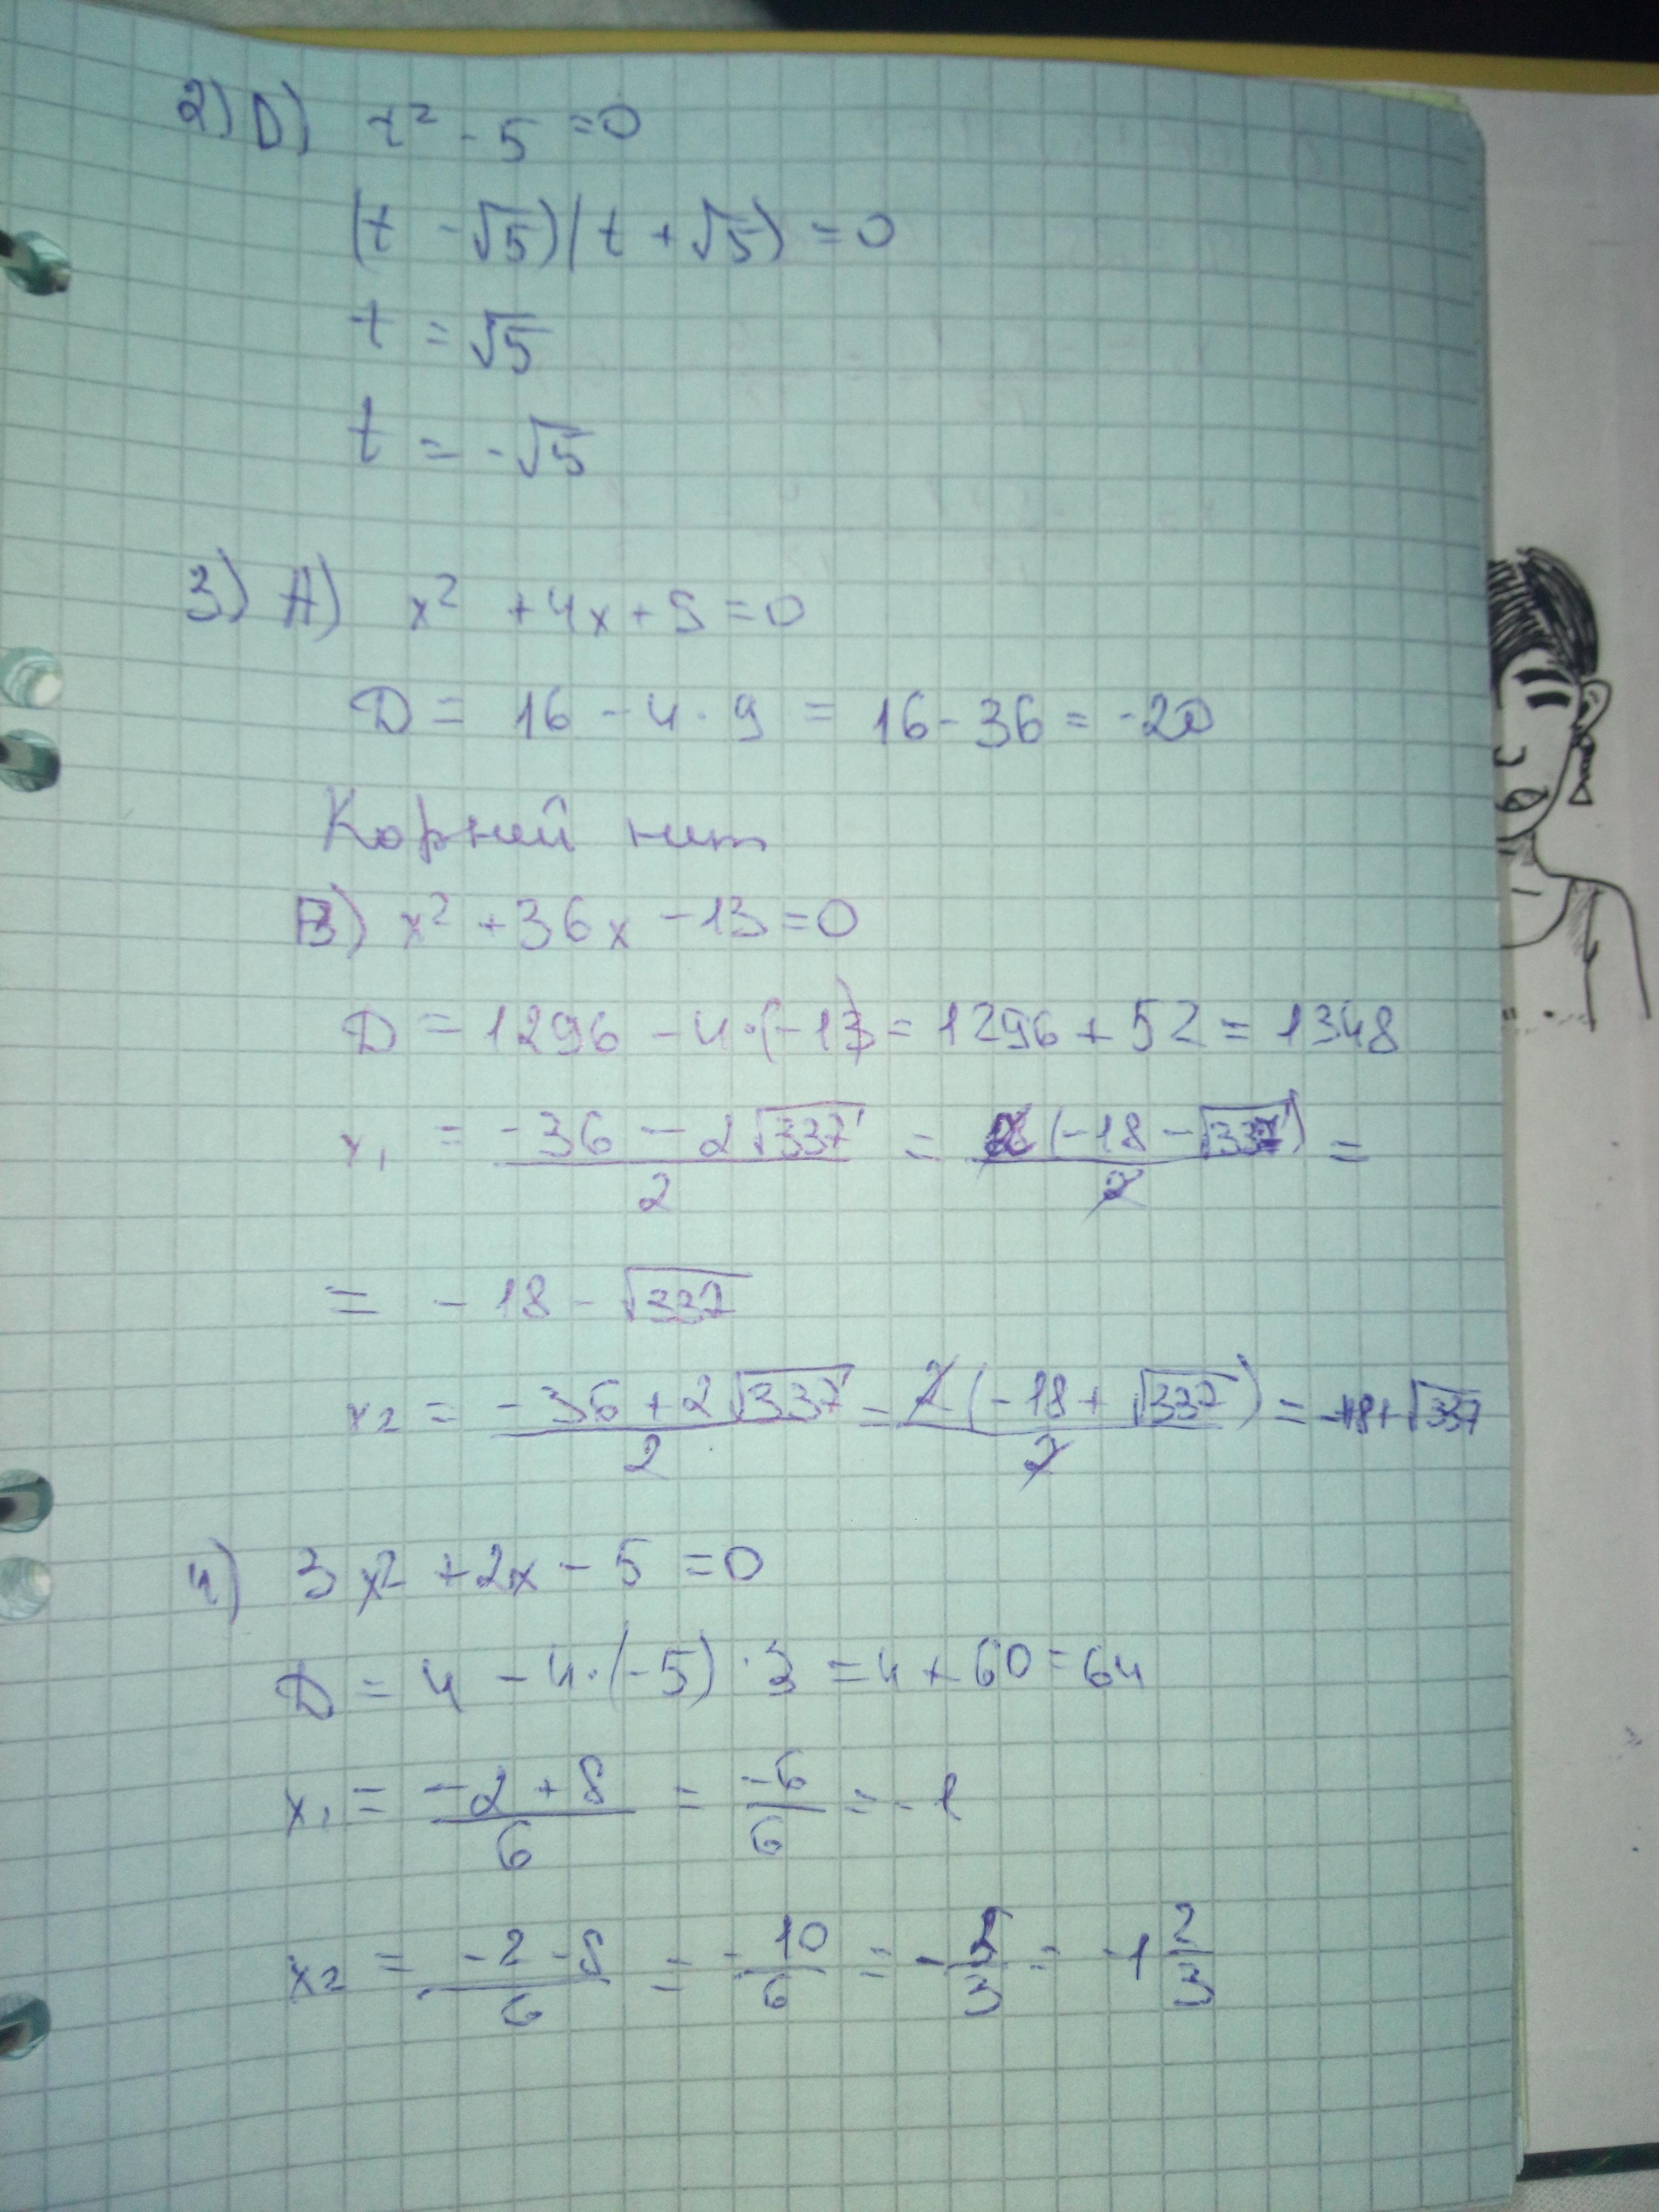 2) D) t² - 5 = 0
(t - √5)(t + √5) = 0
t = √5
t = -√5
3) A) x² + 4x + 9 = 0
D = 16 - 4 · 9 = 16 - 36 = -20
Корней нет
B) x² + 36x - 13 = 0
D = 1296 - 4 · (-13) = 1296 + 52 = 1348
x₁ = (-36 - 2√337)/2 = 2(-18 - √337)/2 =
= -18 - √337
x₂ = (-36 + 2√337)/2 = 2(-18 + √337)/2 = -18 + √337
4) 3x² + 2x - 5 = 0
D = 4 - 4 · (-5) · 3 = 4 + 60 = 64
x₁ = (-2 + 8)/6 = -6/6 = -1
x₂ = (-2 - 8)/6 = -10/6 = -5/3 = -1 2/3